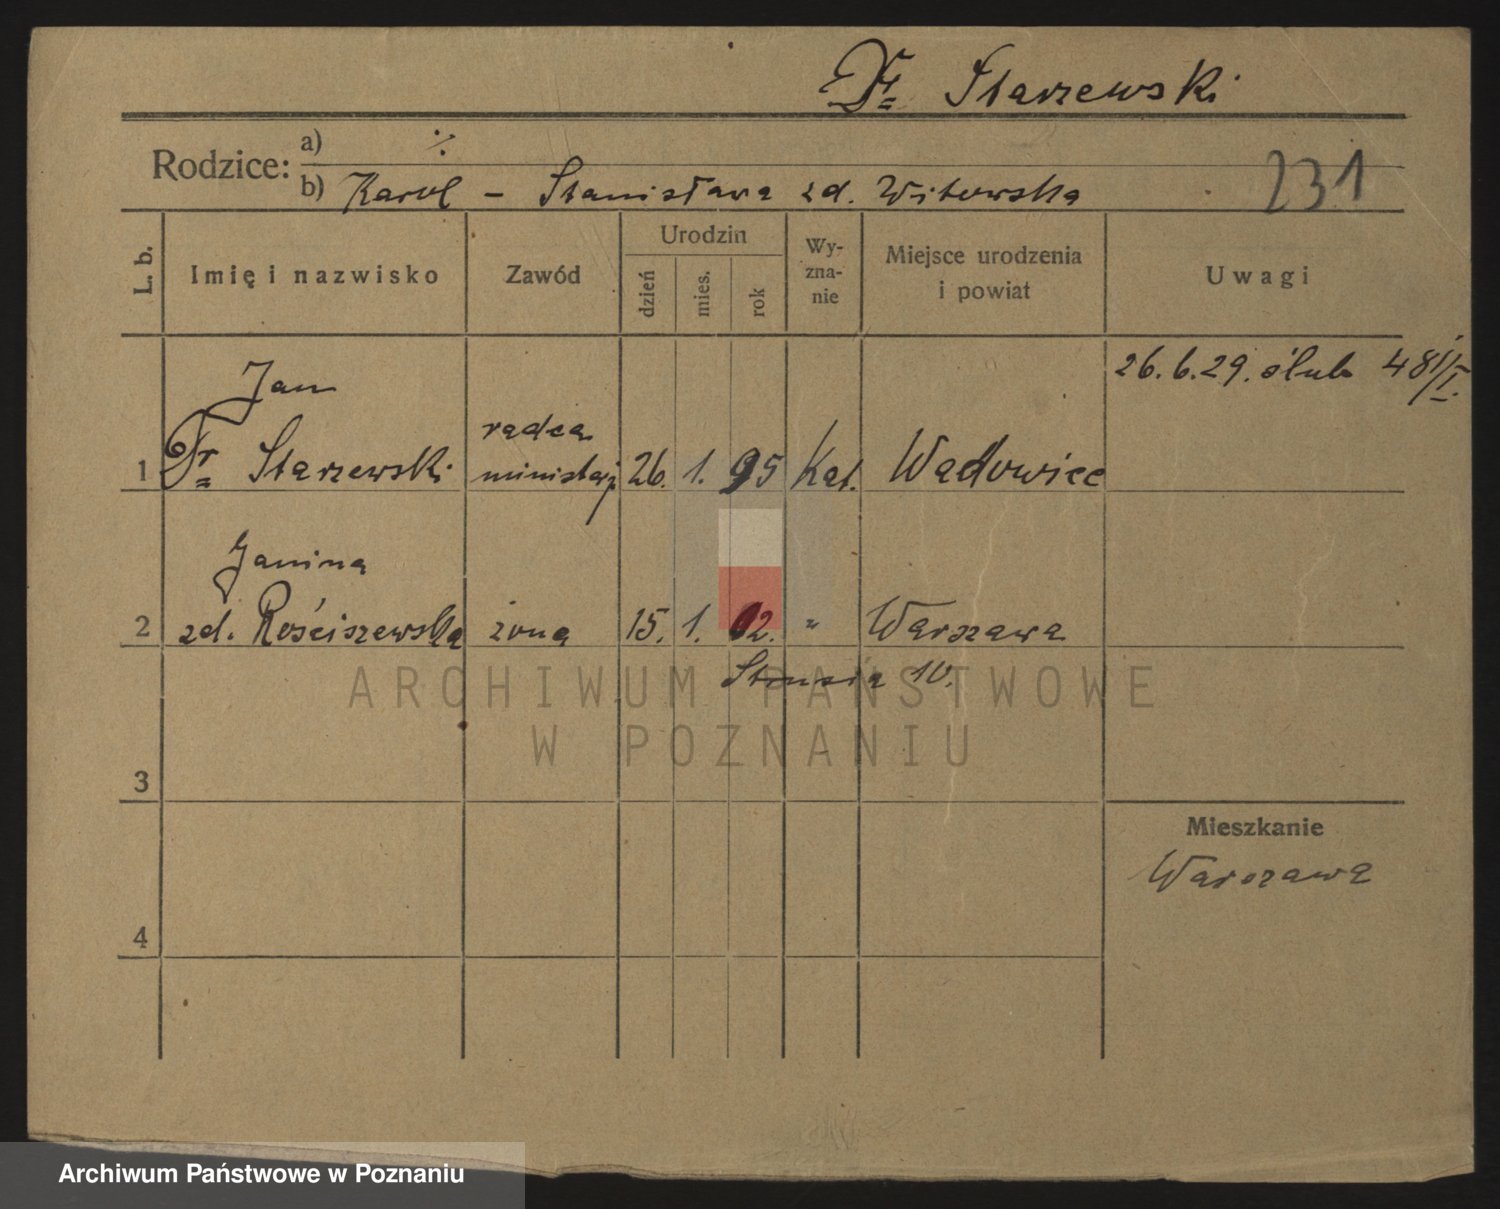 Dr Starzewski
Rodzice: a) ·/·
b) Karol – Stanisława zd. Witowska
231
L. b.
Imię i nazwisko
Zawód
Urodzin
dzień
mies.
rok
Wy-
zna-
nie
Miejsce urodzenia
i powiat
Uwagi
26.6.29. ślub
Jan
1 Dr Starzewski radca ministerj. 26. 1. 95 Kat. Wadowice
Janina
2 zd. Rościszewska żona 15. 1. 02. " Warszawa
10.
ARCHIWUM PAŃSTWOWE
W POZNANIU
3
Mieszkanie
Warszawa
4
Archiwum Państwowe w Poznaniu